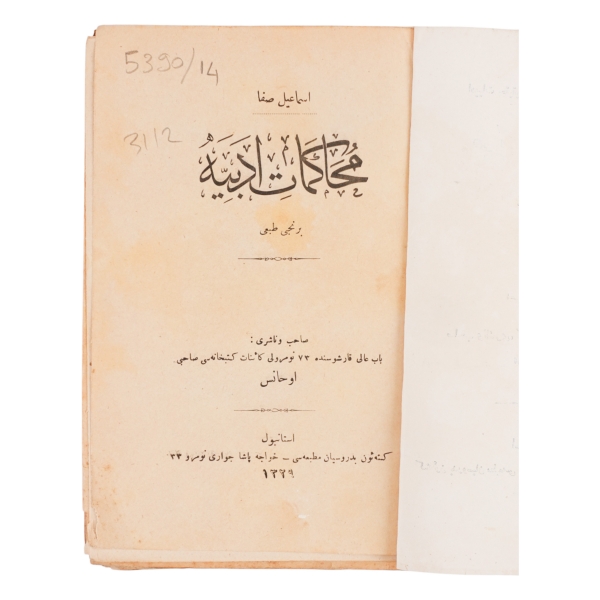 5390/14
اسماعیل صفا
3112
مُحَاكَمَاتِ اَدَبِيَّه
برنجی طبعی
صاحب و ناشری :
باب عالی قارشوسنده ٧٣ نومرولی كائنات كتبخانه‌سی صاحبی
اوحانس
استانبول
كتەئون بدروسيان مطبعه‌سی – خواجه پاشا جواری نومرو ٣٣
١٣٢٩